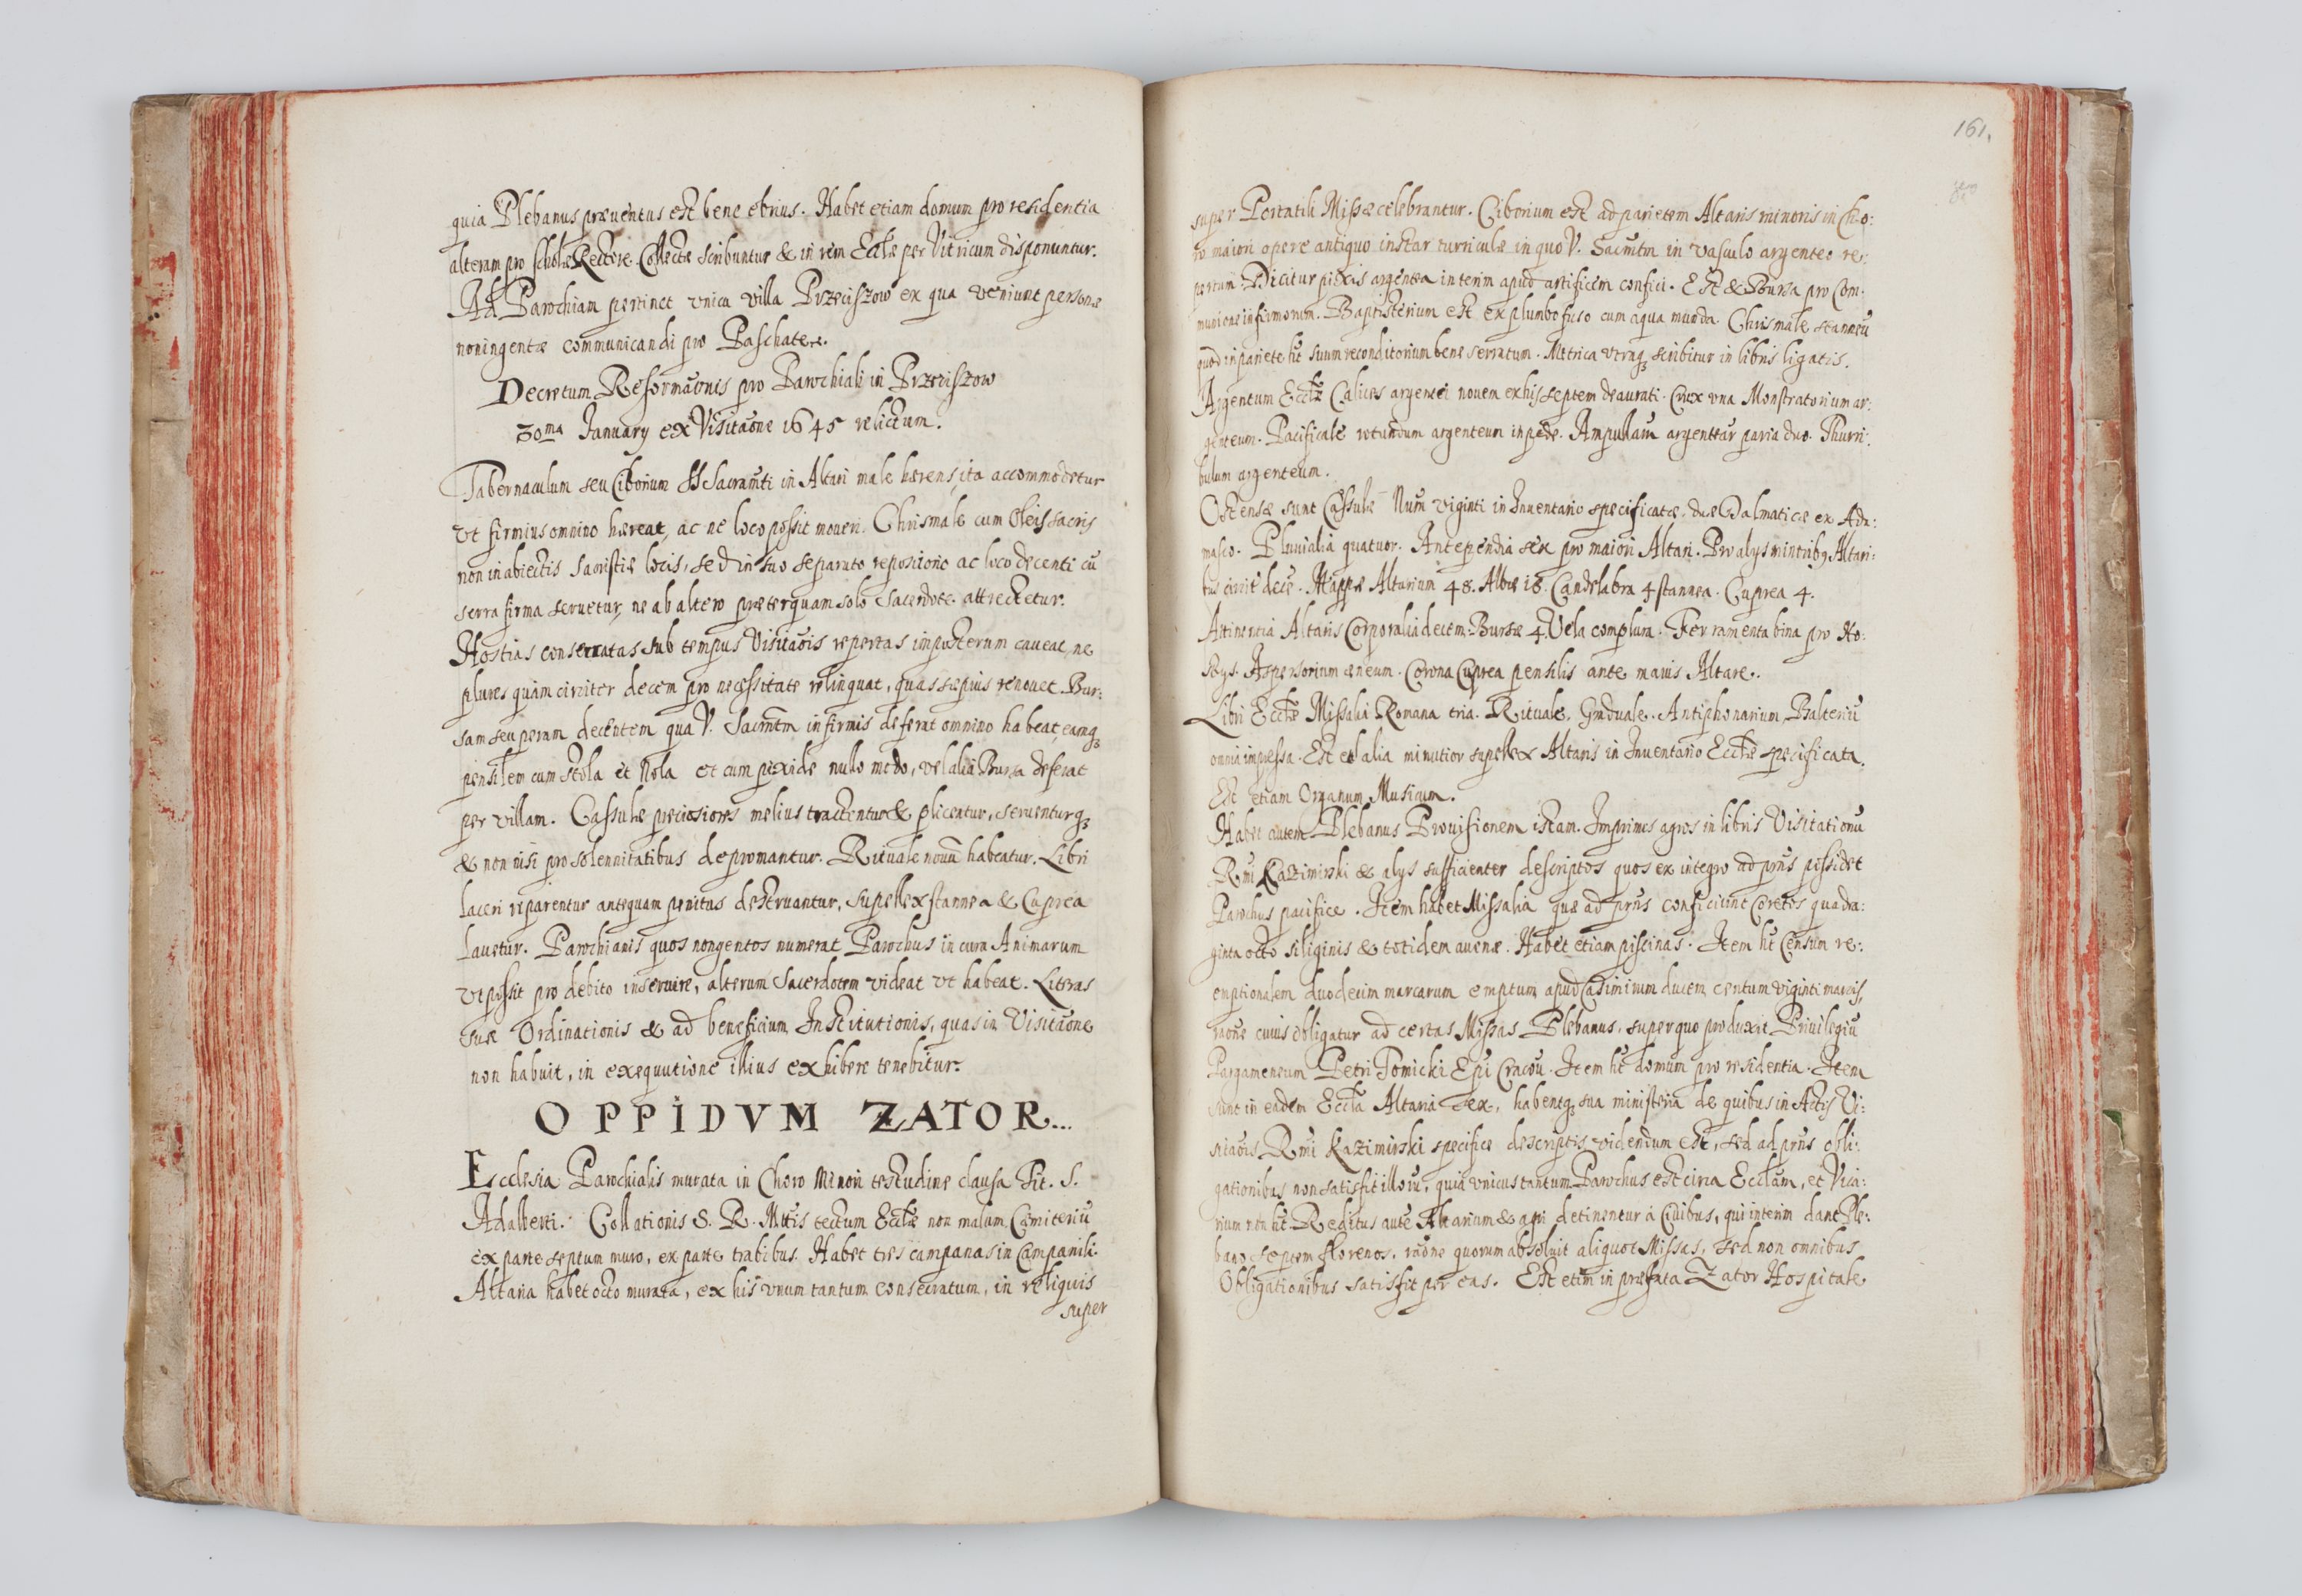 quia Plebanus præuentus est bene ebrius. Habet etiam domum pro residentia
alteram pro Scholæ Rectore. Collectæ scribuntur & in rem Eccłæ per Vitricum disponuntur.
Ad Parochiam pertinet vnica villa Przeciszow ex qua veniunt personæ
noningentæ communicandi pro Paschate.
Decretum Reformãonis pro Parochiali in Przeciszow
30ma January ex Visitãone 1645 relictum.
Tabernaculum seu Ciborium SS Sacramti in Altari male hærens, ita accommodetur
vt firmius omnino hæreat, ac ne loco possit moueri. Chrismale cum Oleis sacris
non in abiectis Sacristiæ locis, sed in suo separato repositorio ac loco decenti cũ
serra firma seruetur, ne ab altero præterquam solo Sacerdote attrectetur.
Hostias consecratas sub tempus Visitãois repertas imposterum caueat, ne
plures quàm circiter decem pro necessitate relinquat, quas sæpius renouet. Bur:
sam seu peram decentem qua V. Sacrmtm infirmis deferat omnino habeat, eamq3
pensilem cum Stola et Nola et cum pixide nullo modo, vel alia Bursa deferat
per villam. Cassulæ preciosiores melius tractentur & plicentur, seruenturq3
& non nisi pro solennitatibus depromantur. Rituale nouũ habeatur. Libri
laceri reparentur antequam penitus destruantur, Supellex stannea & Cuprea
lauetur. Parochianis quos nongentos numerat Parochus in cura Animarum
vt possit pro debito inseruire, alterum Sacerdotem videat vt habeat. Literas
suæ Ordinationis & ad beneficium Institutionis, quas in Visitãone
non habuit, in exequutione illius exhibere tenebitur.
OPPIDVM ZATOR...
Ecclesia Parochialis murata in Choro Minori testudine clausa Tit. S.
Adalberti. Collationis S. R. Mttis tectum Eccłæ non malum Cæmiteriũ
ex parte septum muro, ex parte trabibus. Habet tres campanas in Campanili.
Altaria habet octo murata, ex his vnum tantum consecratum, in reliquis
super
161.
super Portatili Missæ celebrantur. Ciborium est ad parietem Altaris minoris in Cho:
ro maiori opere antiquo instar turriculæ in quo V. Sacrmtm in vasculo argenteo re:
pertum. Dicitur pixis argentea interim apud artificem confici. Est & Bursa pro Com:
munione infirmorum. Baptisterium est ex plumbo fuso cum aqua munda. Chrismale stanneũ
quod in pariete ht suum reconditorium bene serratum. Metrica vtraq3 scribitur in libris ligatis.
Argentum Eccłæ Calices argentei nouem ex his septem deaurati. Crux vna Monstratorium ar:
genteum. Pacificale rotundum argenteum in pede. Ampullarũ argentear paria duo. Thurri:
bulum argenteum.
Ostensæ sunt Cassulæ Num viginti in Inuentario specificatæ, duæ Dalmaticæ ex Ada:
masco. Pluuialia quatuor. Antependia sex pro maiori Altari. Pro alys minorib9 Altari:
bus circit decẽ. Mappæ Altarium 48. Albæ 18. Candelabra 4 stannea. Cuprea 4.
Attinentia Altaris Corporalia decem. Bursæ 4. Vela complura. Ferramenta bina pro Ho:
stys. Aspersorium æneum. Corona Cuprea pensilis ante maius Altare.
Libri Eccłæ Missalia Romana tria. Rituale, Graduale. Antiphonarium, Psalteriũ
omnia impressa. Est et alia minutior supellex Altaris in Inuentario Eccłæ specificata.
Est etiam Organum Musicum.
Habet autem Plebanus Prouisionem istam. Imprimis agros in libris Visitationũ
Rmi Kazimirski & alys sufficienter descriptos quos ex integro ad prns possidet
Parochus pacifice. Item habet Missalia quæ ad prns conficiunt Coretos quadra:
ginta octo siliginis & totidem auenæ. Habet etiam piscinas. Item ht Censum re:
emptionalem duodecim marcarum emptum apud Casimirum ducem centum viginti marcis,
rãone cuius obligatur ad certas Missas Plebanus, super quo produxit Priuilegiũ
Pargameneum Petri Tomicki Epi Cracou. Item ht domum pro residentia. Item
sunt in eadem Eccła Altaria sex, habentq3 sua ministeria de quibus in Actis Vi:
sitãois Rmi Kazimirski specifice descriptis videndum est, sed ad prns obli:
gationibus non satisfit illorũ, quia vnicus tantum Parochus est circa Eccłam, et Vica:
rium non ht. Reditus autẽ Altarium & agri detinentur à Ciuibus, qui interim dant Ple:
bano septem florenos, rãone quorum absoluit aliquot Missas, sed non omnibus
Obligationibus satisfit per eas. Est etim in præfata Zator Hospitale